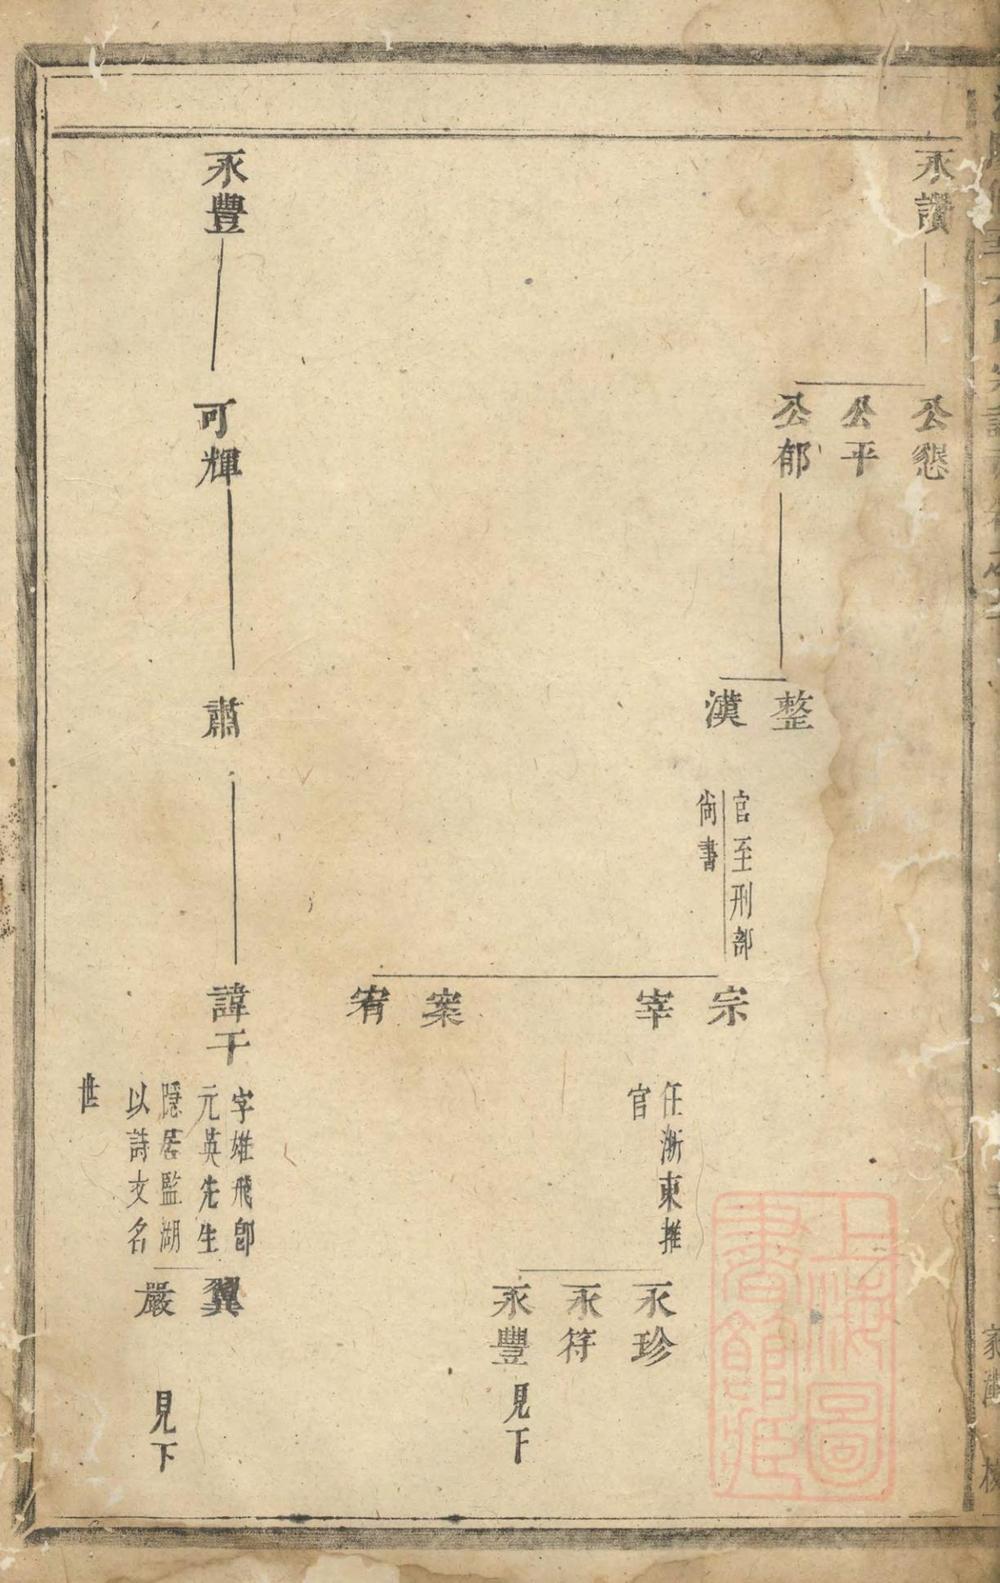 永讚
公懇
公平
公郁
整
漢
官至刑部
尚書
宗
宰
任浙東推
官
案
宥
永珍
永符
永豐
見下
永豐
可輝
肅
諱干
字雄飛卽
元英先生
隱居監湖
以詩文名
世
翼
嚴
見下
上海圖
書館藏